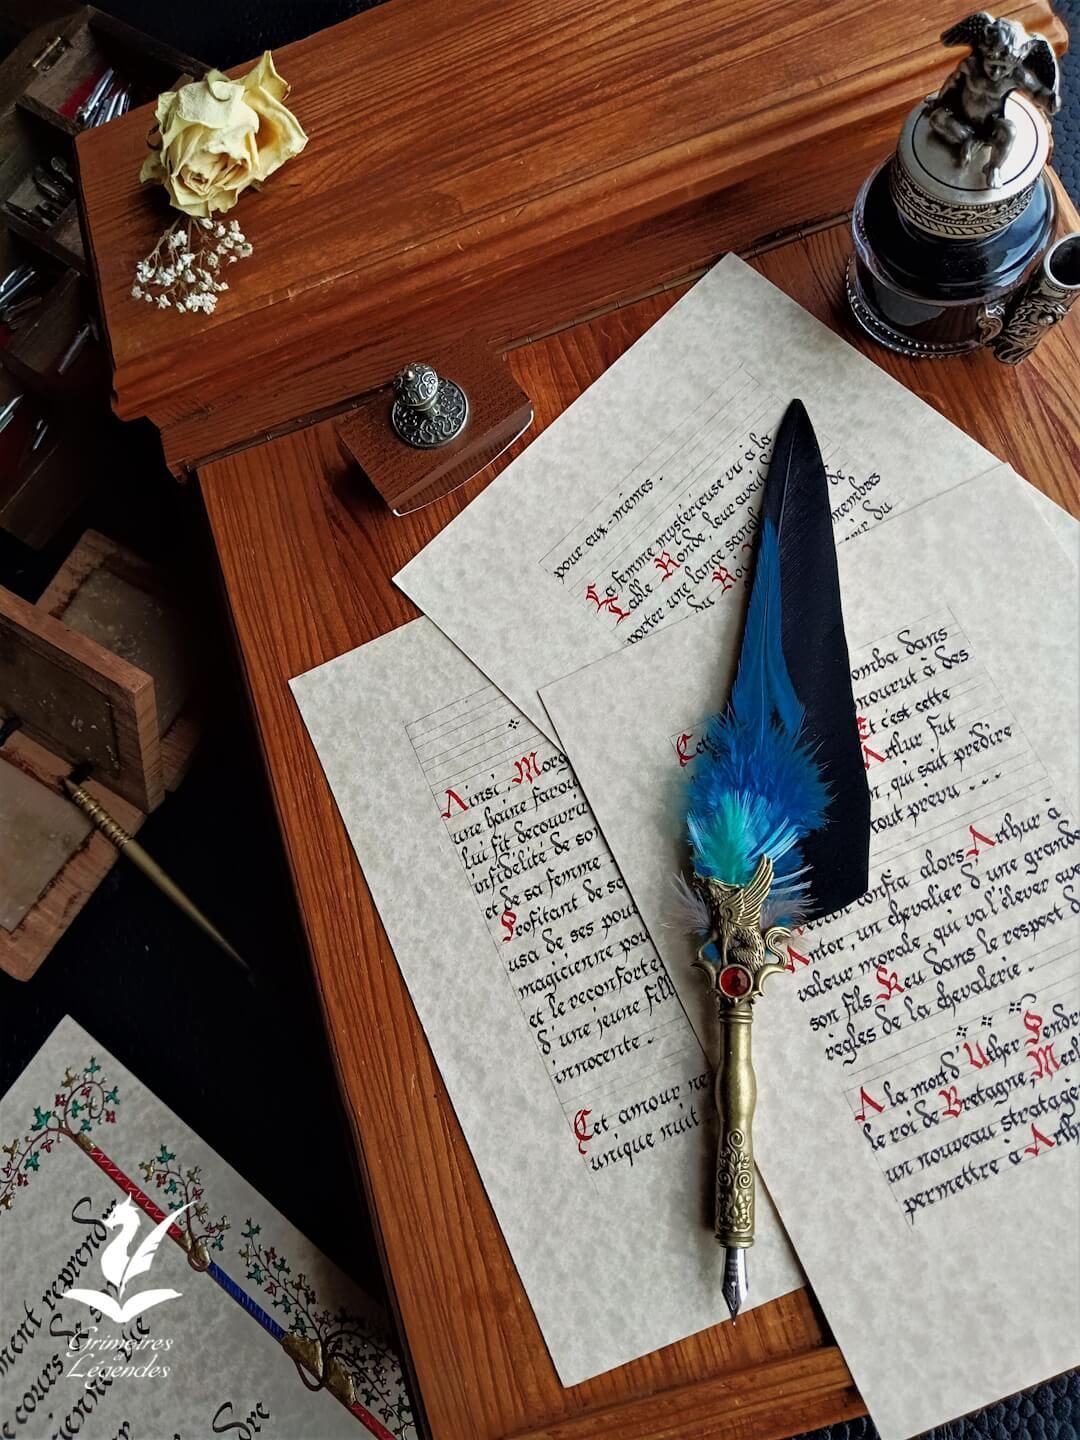 pour eux-mêmes.
La femme mystérieuse vu à la
Table Ronde, leur avait
porter une lance
du
de
membres
du
Ainsi Morg
une haine
lui fit découvri
infidélité de son
et de sa femme.
Profitant de so
usa de ses pou
magicienne pou
et le reconforte
d'une jeune fill
innocente.
Cet amour ne
unique nuit
Cet
omba dans
mourut à des
Et c'est cette
Arthur fut
n, qui sait prédire
tout prévu...
confia alors Arthur à
Antor, un chevalier d'une grande
valeur morale, qui va l'élever ave
son fils Keu dans le respect d
règles de la chevalerie.
A la mort d'Uther Pendr
le roi de Bretagne, Merl
un nouveau stratagè
permettre à Arth
ment reprendre
cours de son
dre
Grimoires
et
Légendes